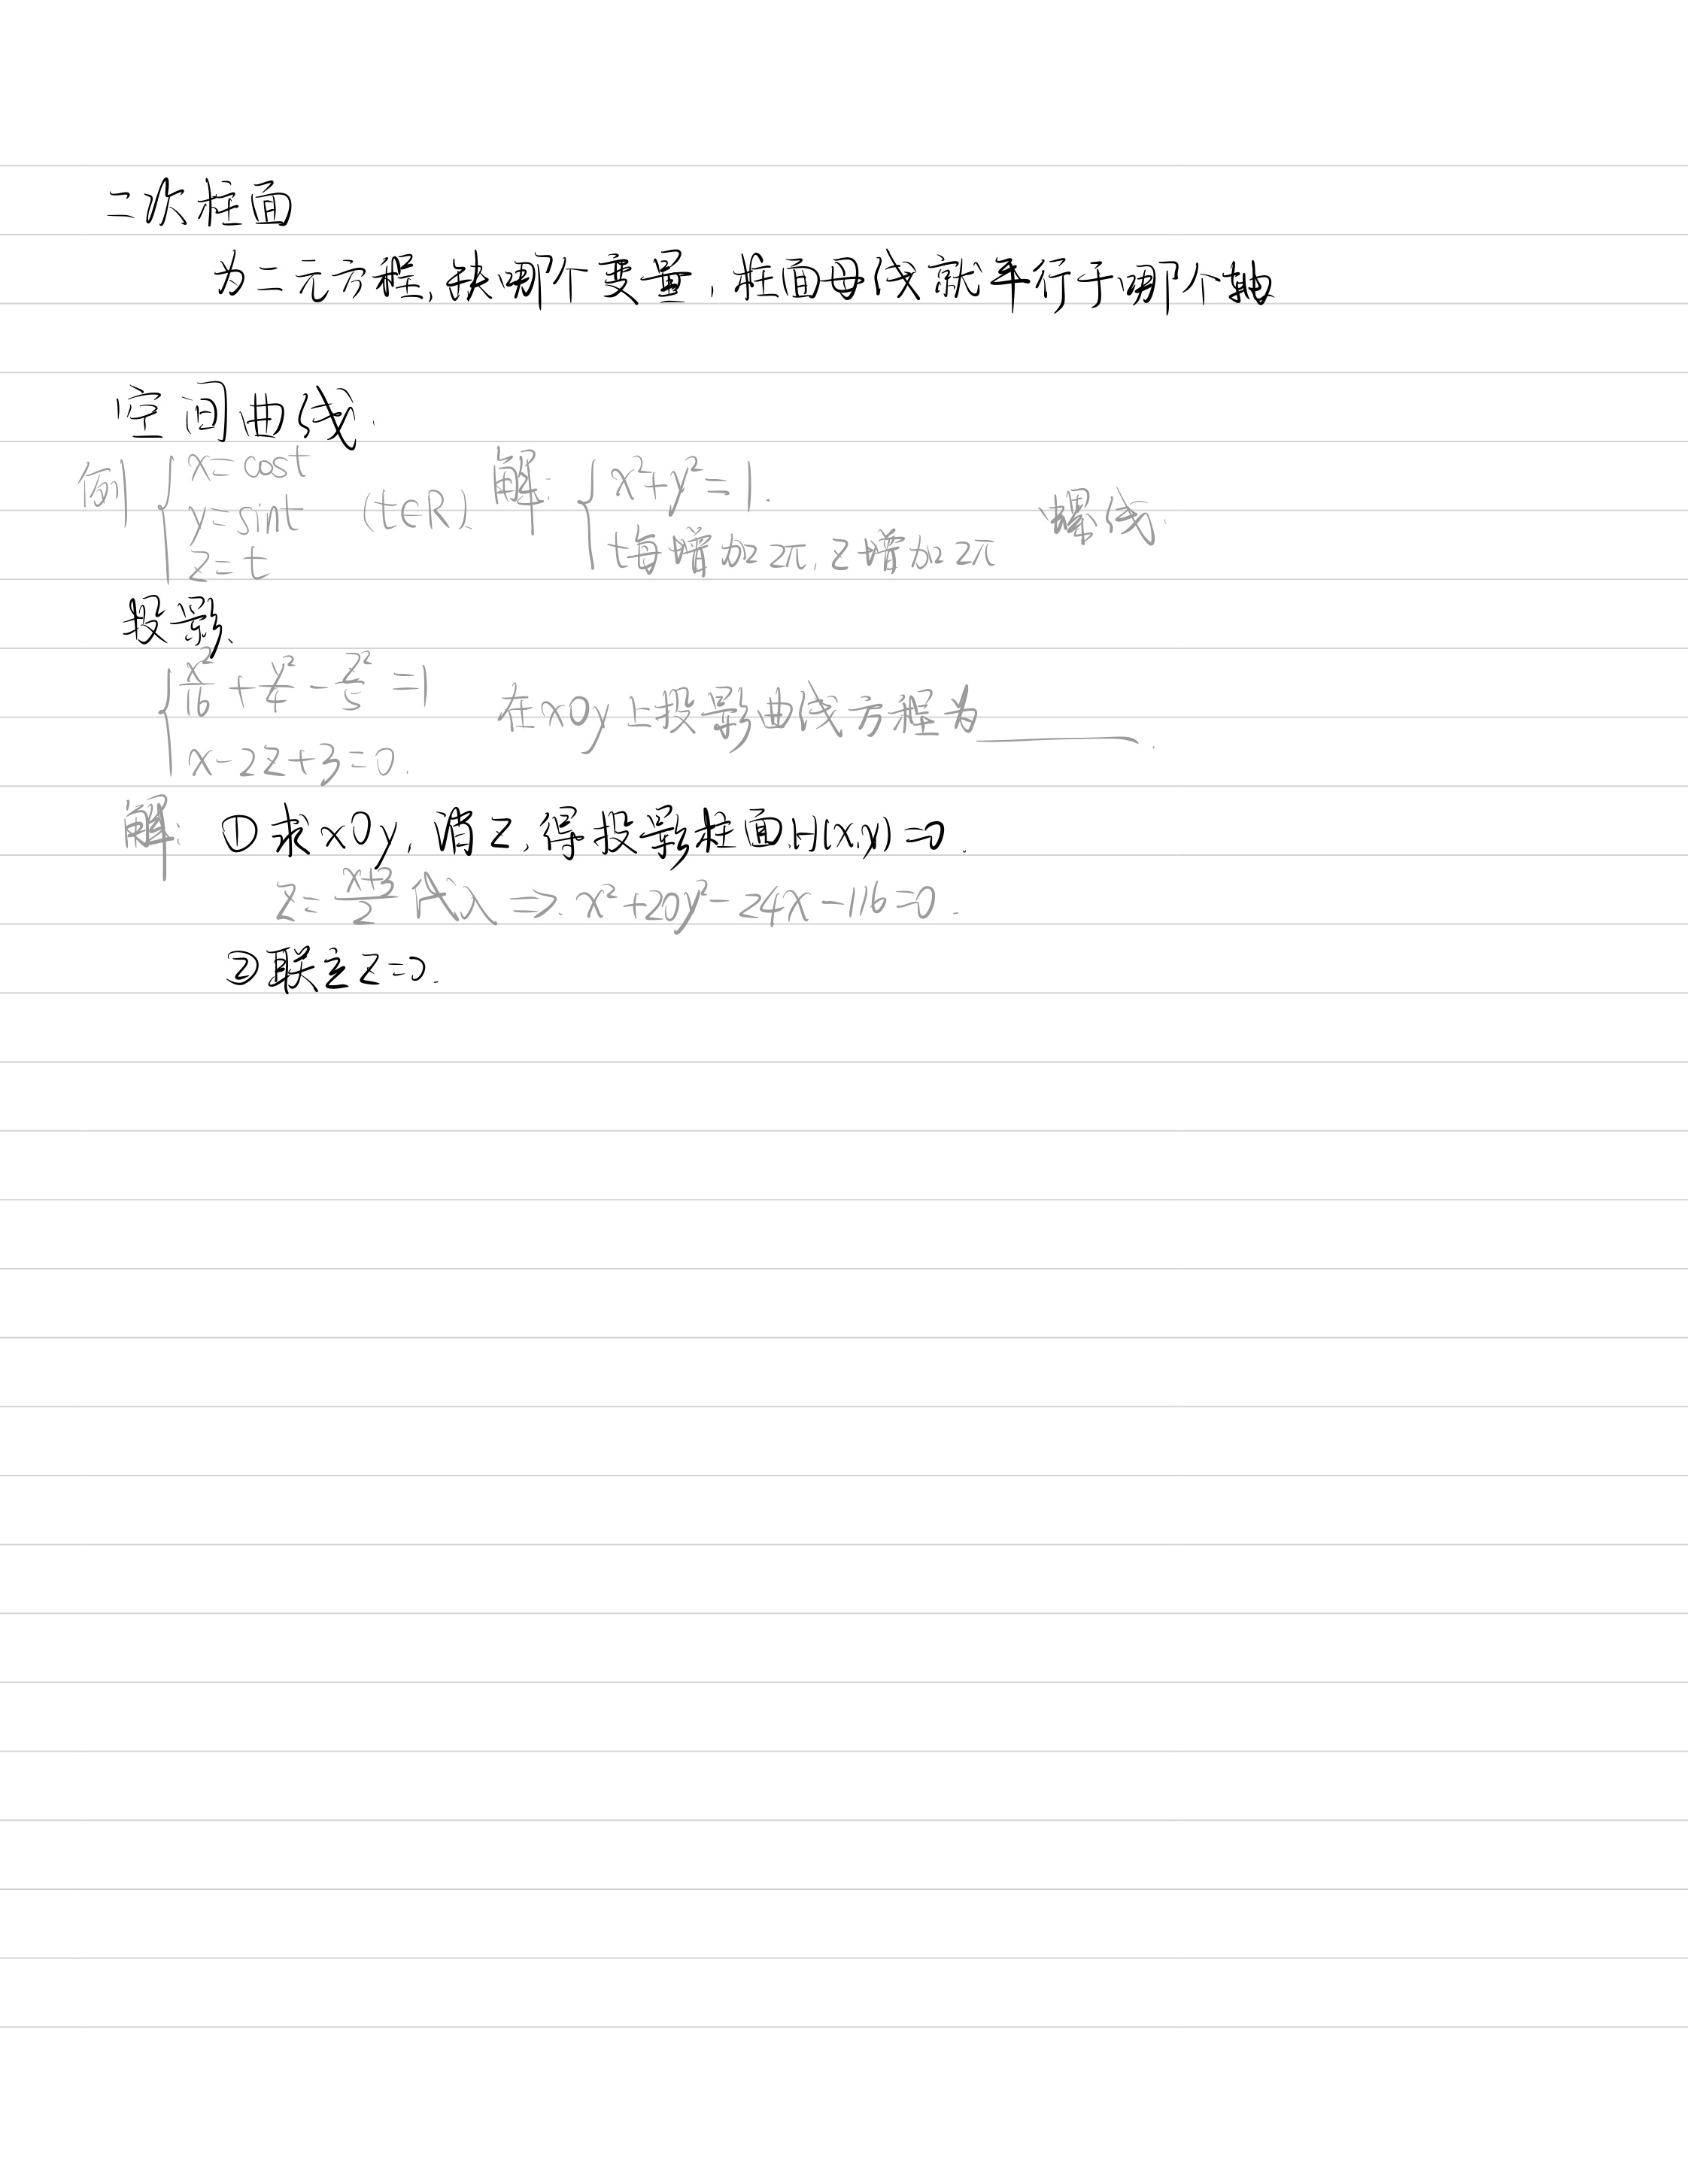 二次柱面
为二元方程,缺哪个变量,柱面母线就平行于哪个轴
空间曲线.
例 { x=cost y=sint z=t (t∈R). 解: { x²+y²=1. t每增加2π,z增加2π 螺线.
投影、
{ x²/16 + y²/4 - z²/5 =1 x-2z+3=0. 在xOy上投影曲线方程为______.
解: ①求xOy,消z,得投影柱面H(x,y)=0.
z= (x+3)/2 代入 ⇒. x²+20y²-24x-116=0.
②联立z=0.